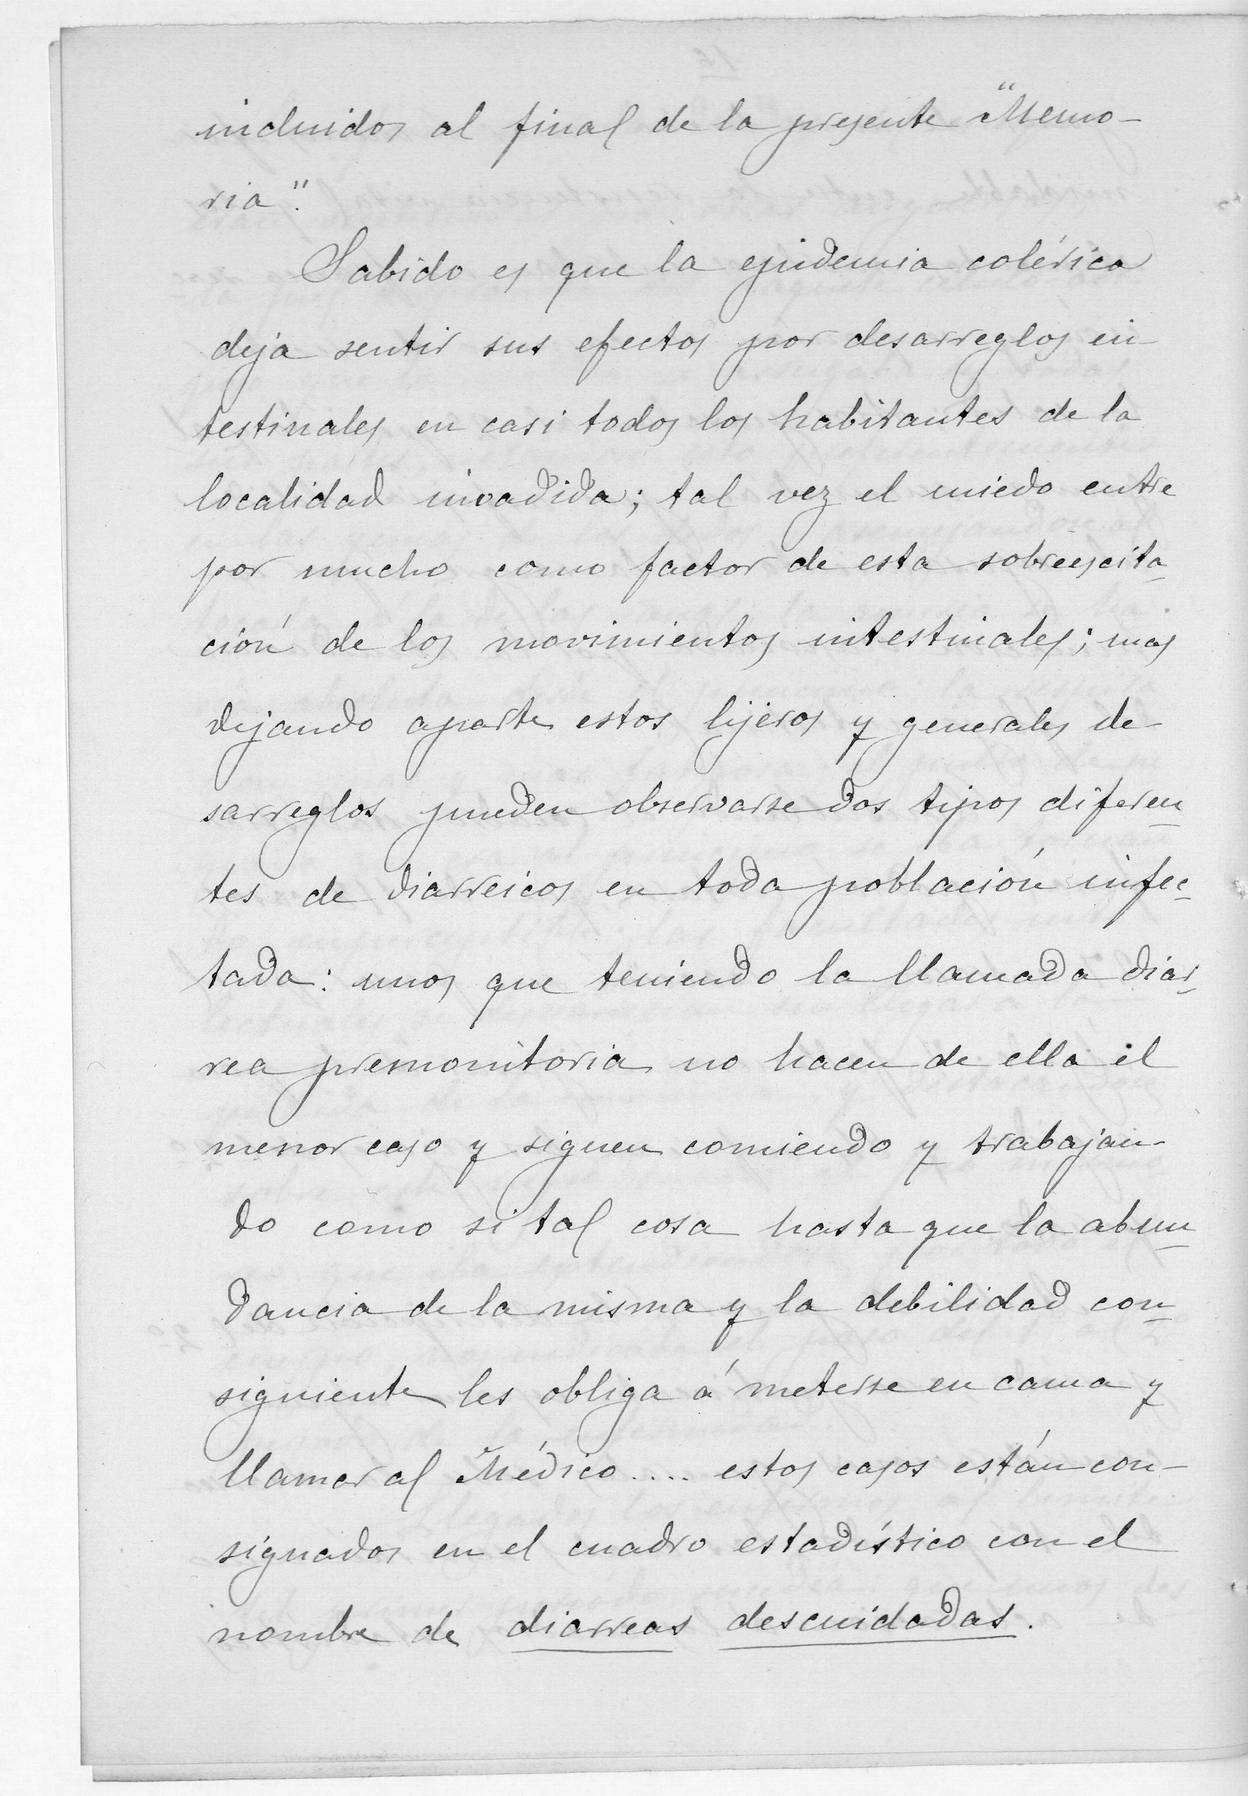 incluidos al final de la presente "Memo-
ria".
Sabido es que la epidemia colérica
deja sentir sus efectos por desarreglos in-
testinales en casi todos los habitantes de la
localidad invadida; tal vez el miedo entre
por mucho como factor de esta sobreescita-
ción de los movimientos intestinales; mas
dejando aparte estos lijeros y generales de-
sarreglos pueden observarse dos tipos diferen-
tes de diarreicos en toda población infec-
tada: unos que teniendo la llamada diar-
rea premonitoria no hacen de ella el
menor caso y siguen comiendo y trabajan-
do como si tal cosa hasta que la abun-
dancia de la misma y la debilidad con-
siguiente les obliga á meterse en cama y
llamar al Médico.... estos casos están con-
signados en el cuadro estadístico con el
nombre de diarreas descuidadas.